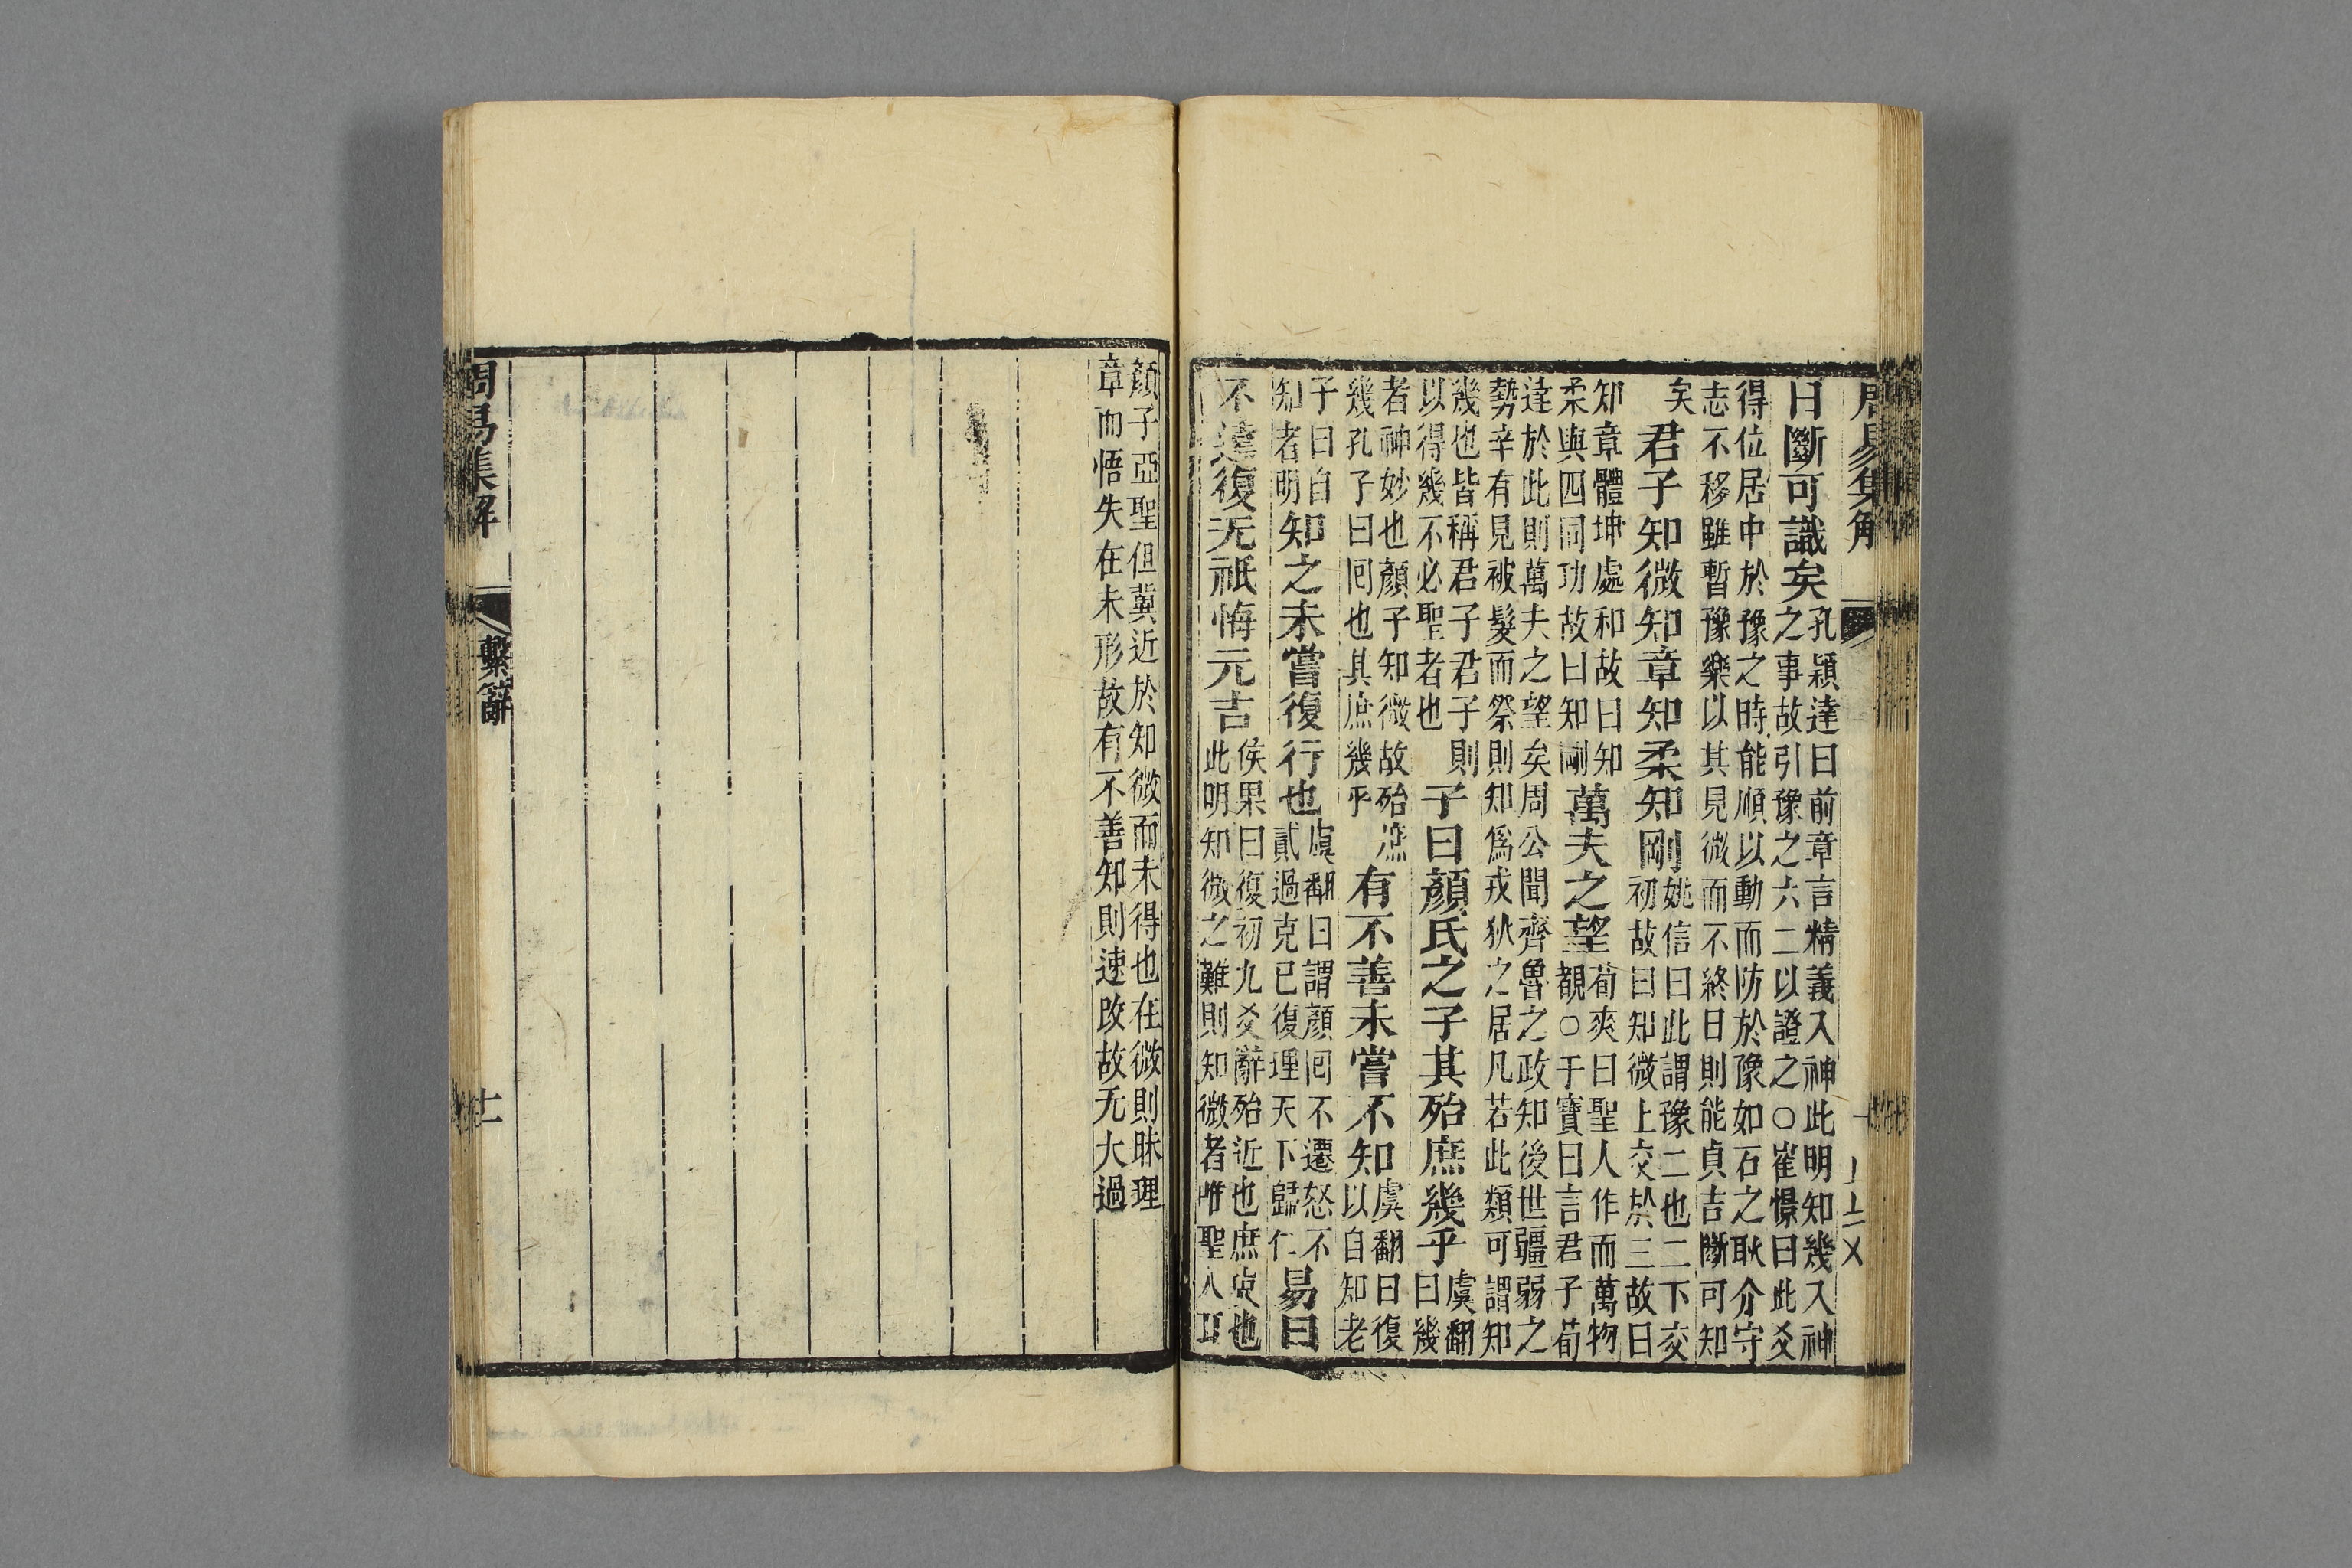 周易集解
日斷可識矣
孔穎達曰前章言精義入神此明知幾入神
之事故引豫之六二以證之○崔憬曰此爻
得位居中於豫之時能順以動而防於豫如石之耿介守
志不移雖暫豫樂以其見微而不終日則能貞吉斷可知
矣
君子知微知章知柔知剛
姚信曰此謂豫二也二下交
初故曰知微上交於三故曰
知章體坤處和故曰知
柔與四同功故曰知剛
萬夫之望
荀爽曰聖人作而萬物
覩○于寶曰言君子荀
達於此則萬夫之望矣周公聞齊魯之政知後世疆弱之
勢辛有見被髮而祭則知爲戎狄之居凡若此類可謂知
幾也皆稱君子君子則
以得幾不必聖者也
子曰顏氏之子其殆庶幾乎
虞翻
曰幾
者神妙也顏子知微故殆庶
幾孔子曰囘也其庶幾乎
有不善未嘗不知
虞翻曰復
以自知老
子曰自
知者明
知之未嘗復行也
虞翻曰謂顏囘不遷怒不
貳過克已復理天下歸仁
易曰
不遠復无祇悔元吉
侯果曰復初九爻辭殆近也庶冀也
此明知微之難則知微者唯聖人耳
顏子亞聖但冀近於知微而未得也在微則昧理
章而悟失在未形故有不善知則速改故无大過
周易集解
繫辭